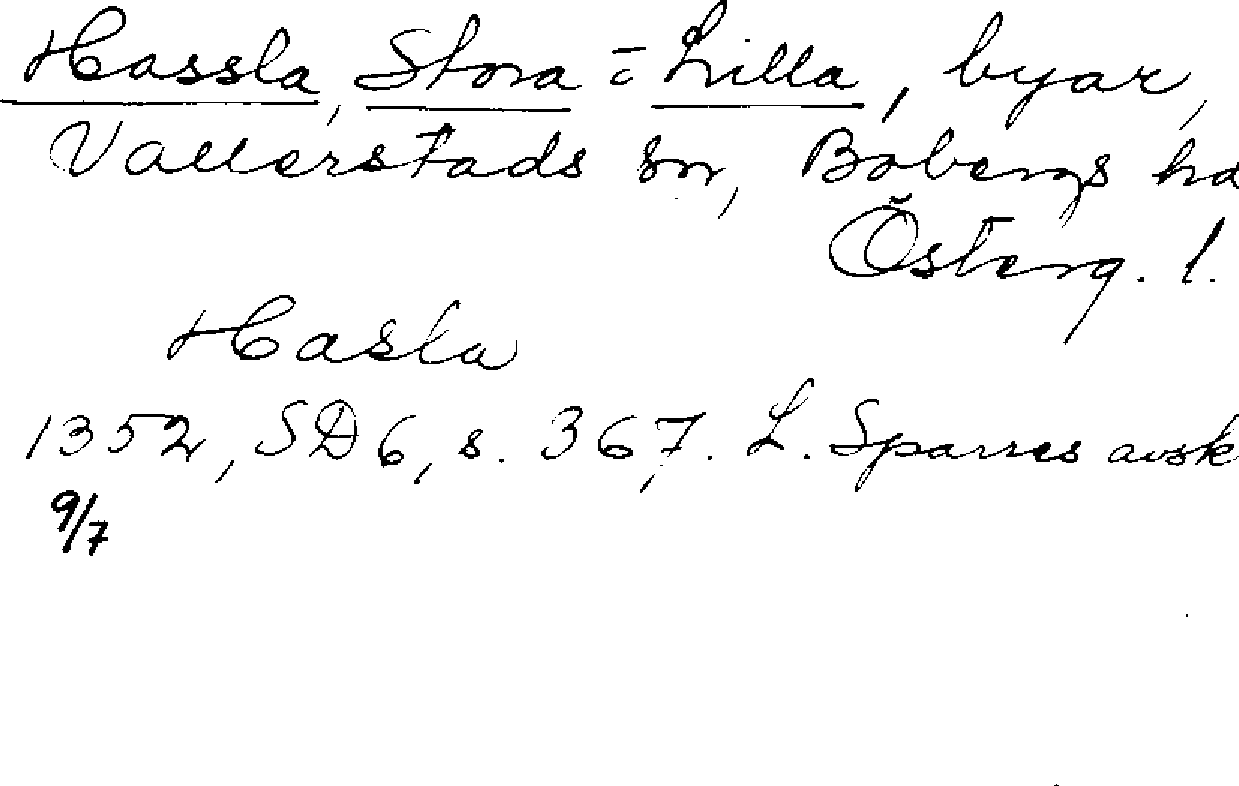 Hassla, Stora o Lilla, byar,
Vallerstads sn, Bobergs hd
Österg. l.
Hasla
1352, SD 6, s. 367. L. Sparres avsk
9/7